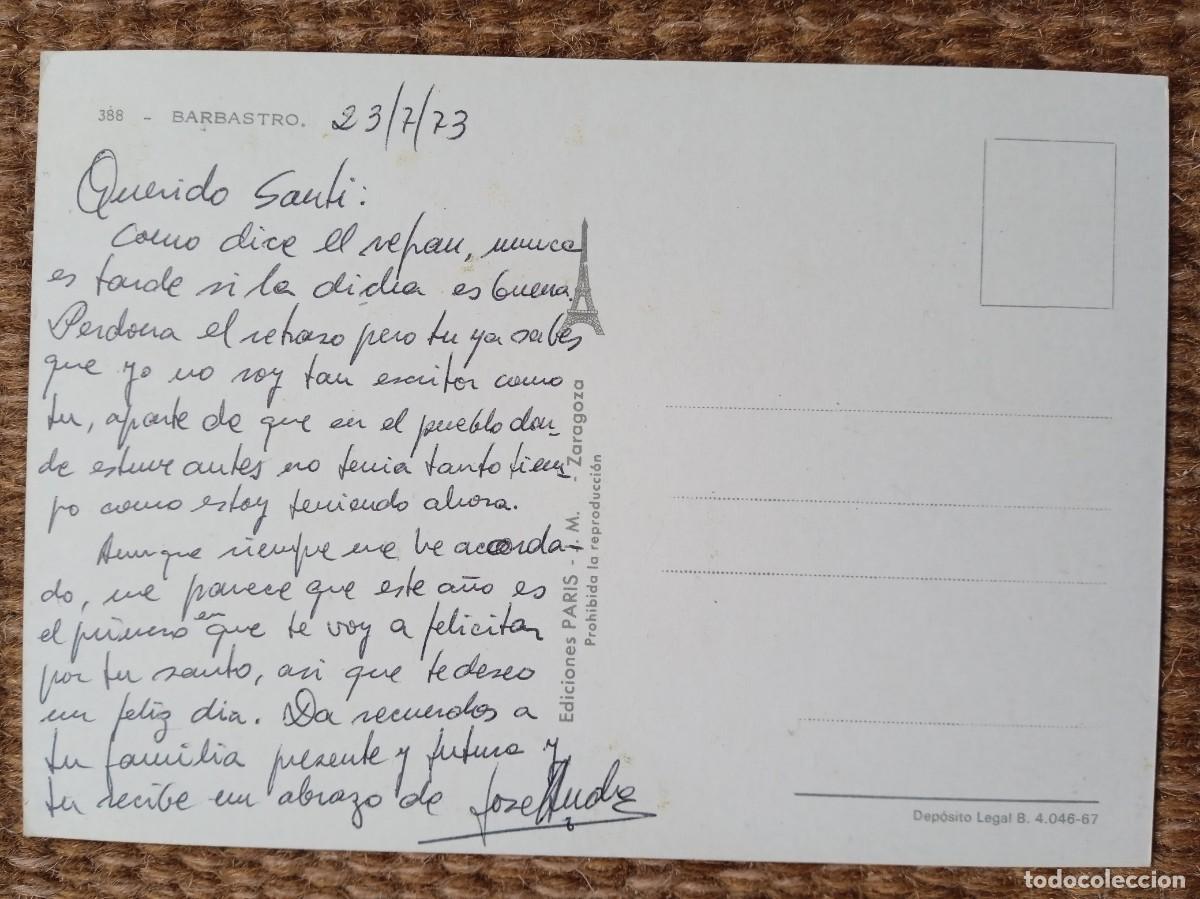 388 - BARBASTRO. 23/7/73
Querido Santi:
Como dice el refran, nunca
es tarde si la dicha es buena.
Perdona el retraso pero tu ya sabes
que yo no soy tan escritor como
tu, aparte de que en el pueblo don-
de estuve antes no tenia tanto tiem-
po como estoy teniendo ahora.
Aunque siempre me he acorda-
do, me parece que este año es
el primero en que te voy a felicitar
por tu santo, asi que te deseo
un feliz dia. Da recuerdos a
tu familia presente y futura y
tu recibe un abrazo de Jose
Ediciones PARIS - J. M. - Zaragoza
Prohibida la reproducción
Depósito Legal B. 4.046-67
todocoleccion